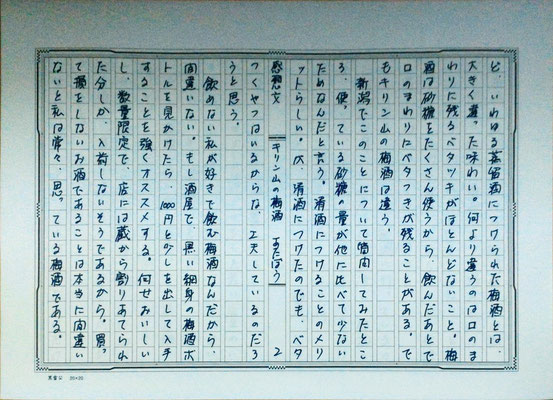 ど、いわゆる蒸留酒につけられた梅酒とは、
大きく違った味わい。何より違うのは口のま
わりに残るベタツキがほとんどないこと。梅
酒は砂糖をたくさん使うから、飲んだあとで
口のまわりにベタつきが残ることがある。で
もキリン山の梅酒は違う。
新潟でこのことについて質問してみたとこ
ろ、使っている砂糖の量が他に比べて少ない
ためなんだと言う。清酒につけることのメリ
ットらしい。が、清酒につけたのでも、ベタ
感想文 キリン山の梅酒 あたぼう 2
つくやつはいるからな、工夫しているのだろ
うと思う。
飲めない私が好きで飲む梅酒なんだから、
間違いない。もし酒屋で、黒い細身の梅酒ボ
トルを見かけたら、1000円と少しを出して入手
することを強くオススメする。何せおいしい
し、数量限定で、店には蔵から割りあてられ
た分しか、入荷しないそうであるから。買っ
て損をしないお酒であることは本当に間違い
ないと私は常々、思っている梅酒である。
20×20